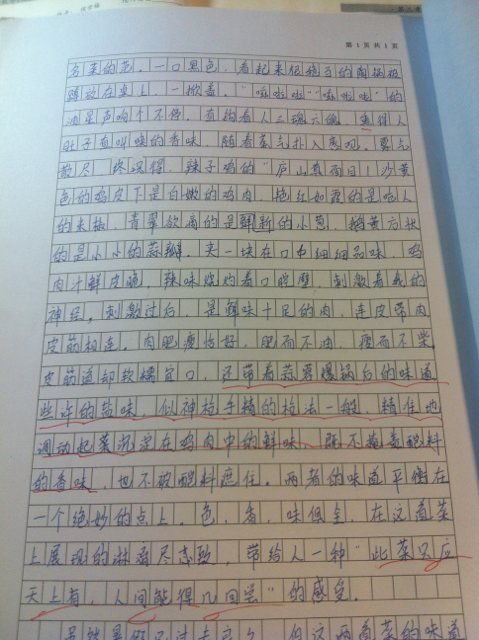 第1页共1页
务菜的范。一口黑色,看起来很穗子的陶锅被
蹲放在桌上,一掀盖,"嘛啦啦""嘛啦啦"的
油星声响个不停。直钩着人三魂六魄,惠得人
肚子直叫唤的香味,随着蒸气扑入鼻观。雾气
散尽,终识得,辣子鸡的"庐山真面目!沙黄
色的鸡皮下是白嫩的鸡肉,艳红如霞的是呛人
的米椒,青翠欲滴的是鲜新的小葱,鹅黄方状
的是小小的蒜瓣。夹一块在口中细细品味,鸡
肉汁鲜皮脆,辣味烧灼着口腔壁,刺激着我的
神经。刺激过后,是鲜味十足的肉,连皮带肉
皮筋相连。肉肥瘦恰好,肥而不油,瘦而不柴
皮筋道却软糯宜口,还带着蒜蓉爆锅后的味道
些许的盐味,似神枪手精的枪法一般,精准地
调动起菜沉淀在鸡肉中的鲜味、既不掩盖配料
的香味,也不被配料遮住。两者的味道平衡在
一个绝妙的点上。色,香,味俱全,在这道菜
上展现的淋漓尽态致,带给人一种"此菜只应
天上有,人间能得几回尝"的感受。
但这两道菜的味道